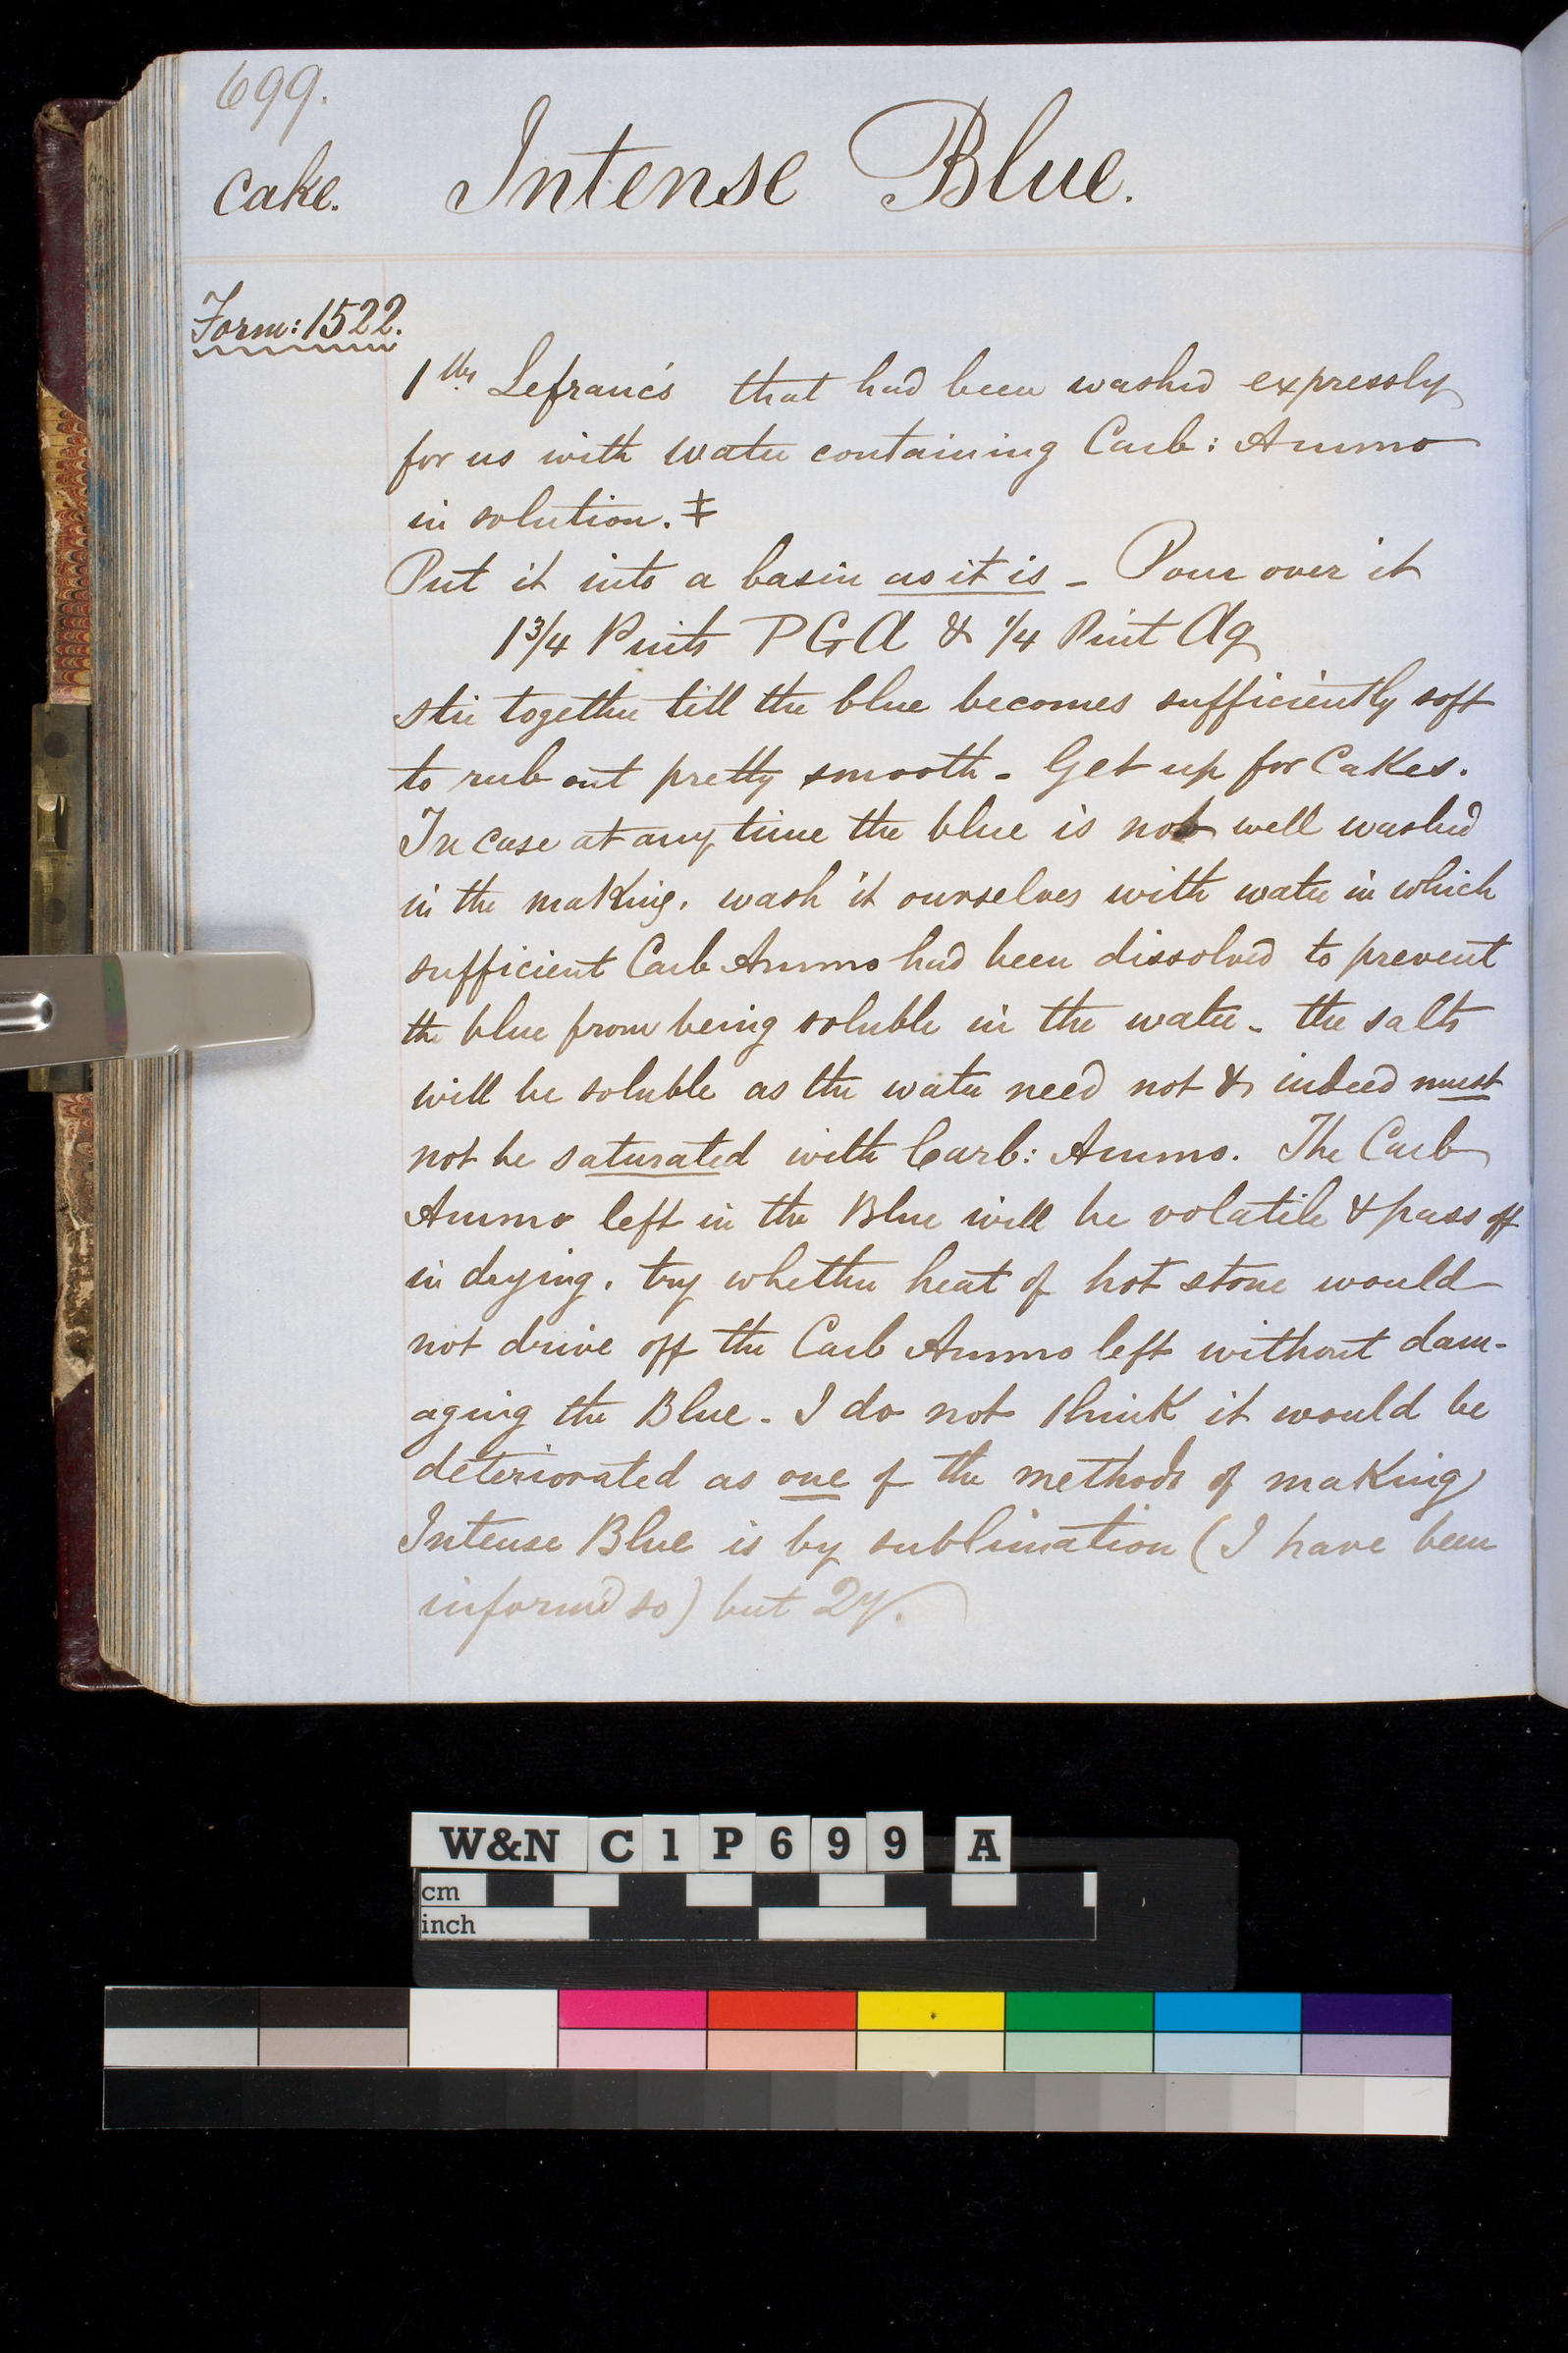 699.
Cake. Intense Blue.
Form: 1522.
1 lbs Lefranc's that had been washed expressly
for us with water containing Carb: Ammo
in solution. ‡
Put it into a basin as it is - Pour over it
1 3/4 Pints P G A & 1/4 Pint Aq
stir together till the blue becomes sufficiently soft
to rub out pretty smooth - Get up for Cakes.
In case at any time the blue is not well washed
in the making, wash it ourselves with water in which
sufficient Carb Ammo had been dissolved to prevent
the blue from being soluble in the water - the salts
will be soluble as the water need not & indeed must
not be saturated with Carb: Ammo. The Carb
Ammo left in the Blue will be volatile & pass off
in drying. try whether heat of hot stone would
not drive off the Carb Ammo left without dam-
aging the Blue - I do not think it would be
deteriorated as one of the methods of making
Intense Blue is by sublimation (I have been
inform'd so) but Qy.
W&N C1P699 A
cm
inch